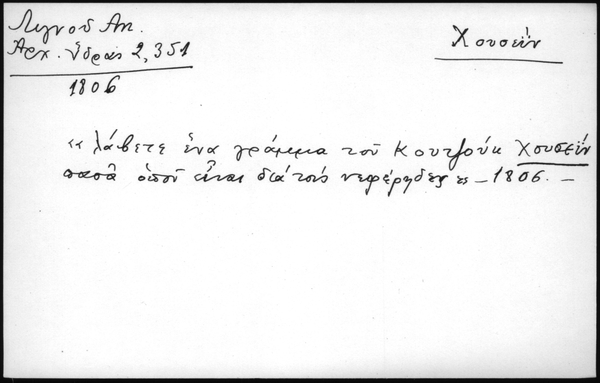 Λιγνοῦ Ἀπ.
Ἀρχ. Ὕδρας 2, 351
1806
Χουσεΐν
« λάβετε ἕνα γράμμα τοῦ Κουτζούκ Χουσεΐν
πασᾶ ὁποῦ εἶναι διά τούς νεφέρηδες » – 1806. –